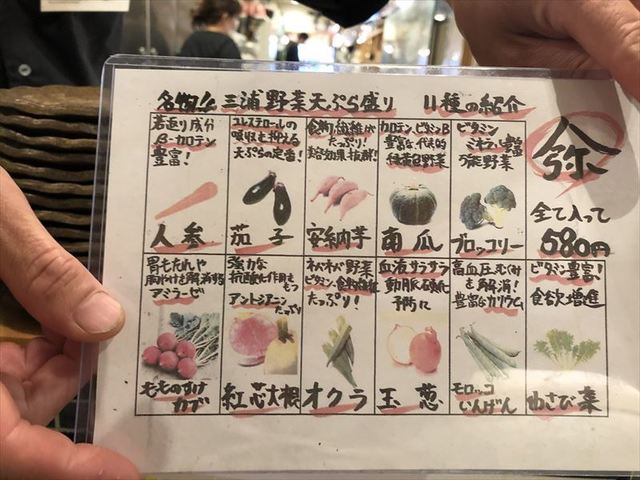 名物!! 三浦野菜天ぷら盛り 11種の紹介
若返り成分
β-カロテン
豊富!
人参
コレステロールの
吸収を抑える
天ぷらの定番!
茄子
食物繊維が
たっぷり!
安納芋
カロテン、ビタミンB
豊富な代表的
緑黄色野菜
南瓜
ビタミン
ミネラル
万能野菜
ブロッコリー
弥
全て入って
580円
胃もたれや
胸やけを解消する
アミラーゼ
もものすけ
カブ
強力な
抗酸化作用をもつ
アントシアニン
たっぷり
紅芯大根
ネバネバ野菜
ビタミン、食物繊維
たっぷり!
オクラ
血液サラサラ
動脈硬化
予防に
玉葱
高血圧、むくみ
を解消!
豊富なカリウム
モロッコ
いんげん
ビタミン豊富!
食欲増進
わさび菜